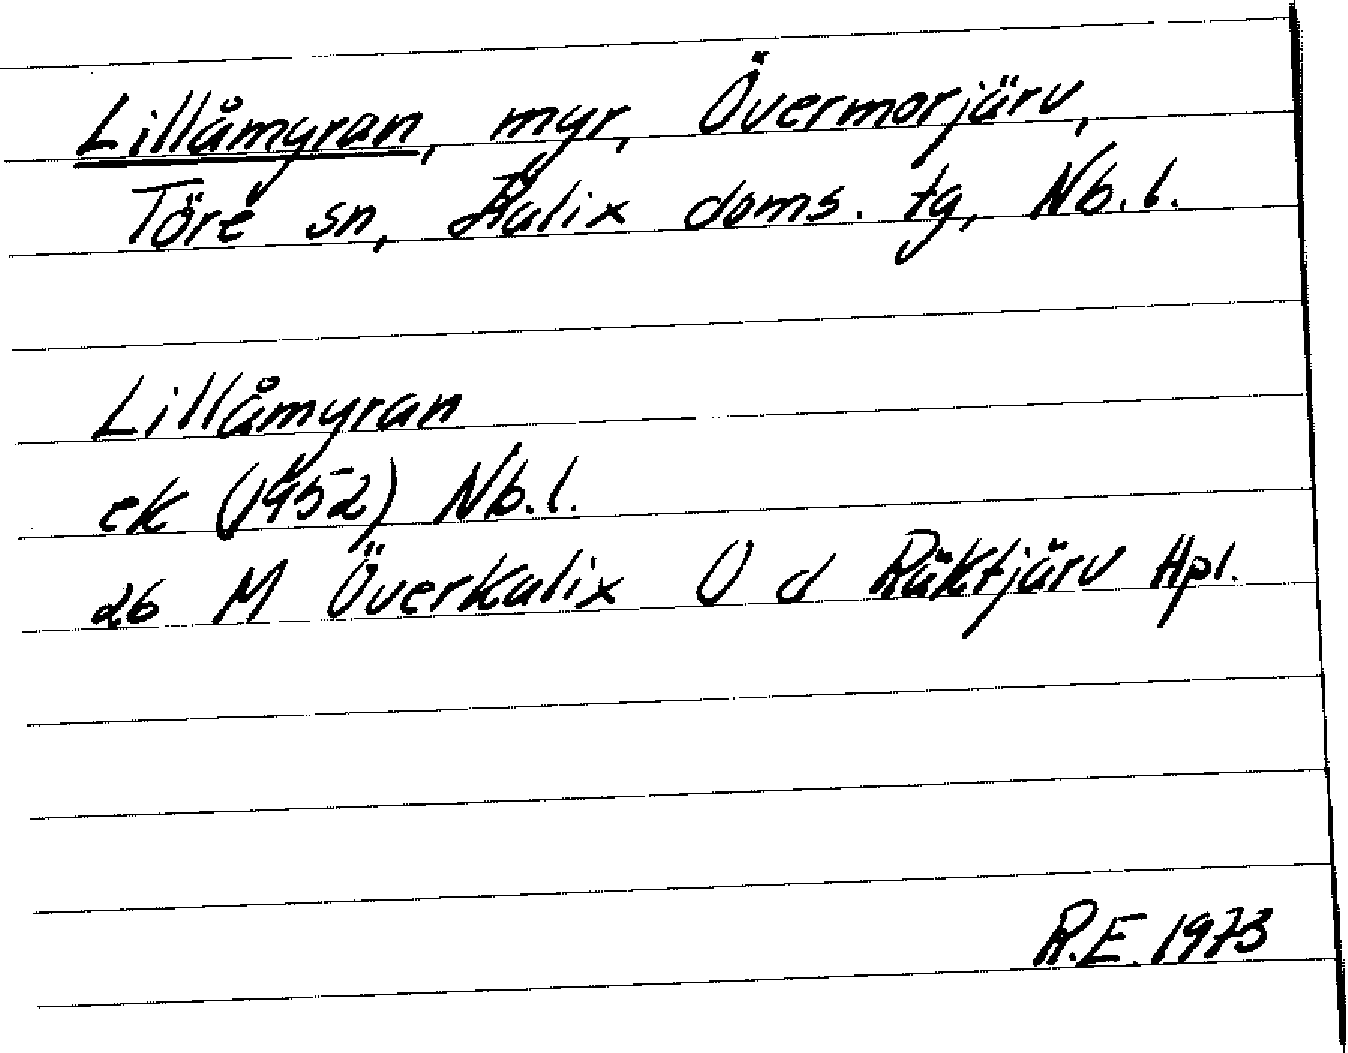 Lillåmyran, myr, Övermorjärv,
Töre sn, Kalix doms. tg, Nb.l.
Lillåmyran
ek (1952) Nb.l.
26 M Överkalix O d Räktjärv Hpl.
R.E. 1973